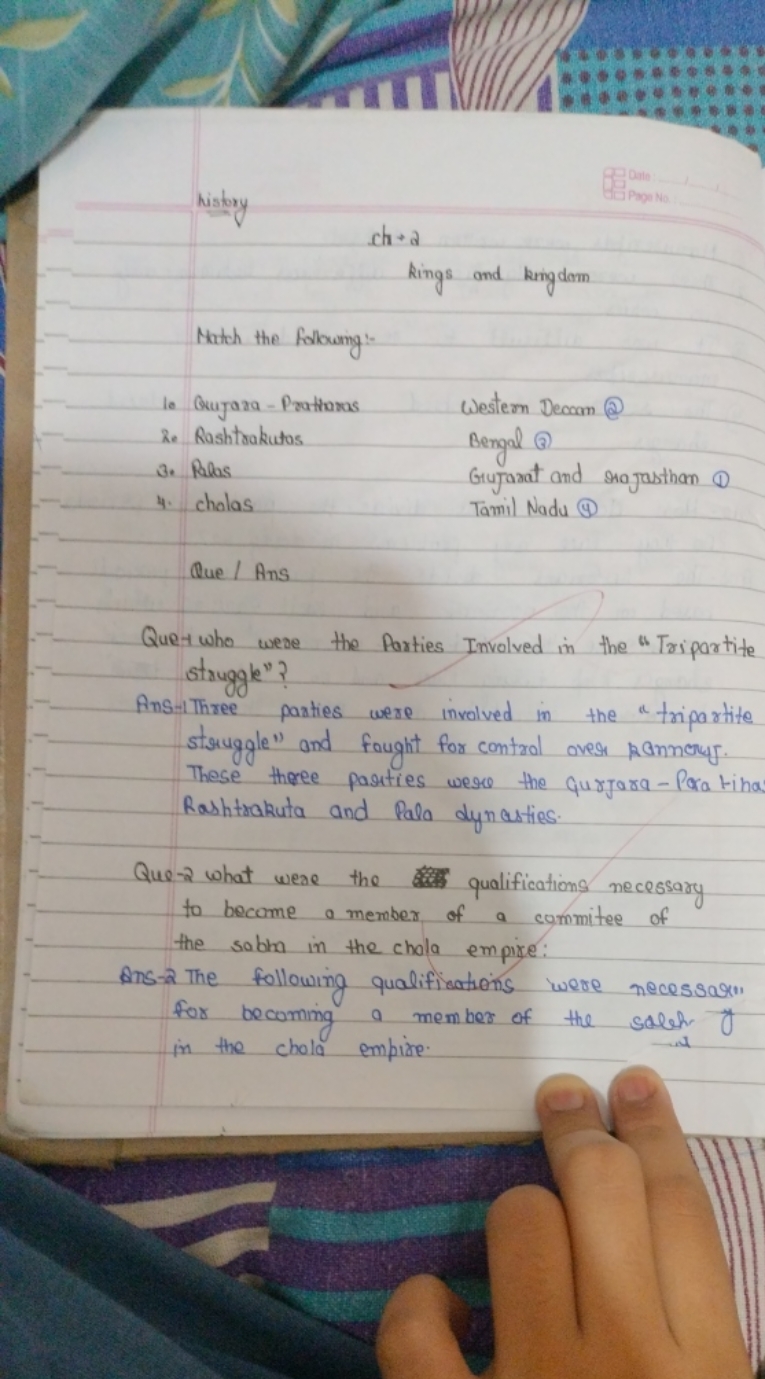 Date
Page No.
history
ch-2
kings and kingdom
Match the following:-
1. Gurjara-Pratharas Western Deccan ②
2. Rashtrakutas Bengal ③
3. Palas Gujarat and Rajasthan ①
4. cholas Tamil Nadu ④
Que / Ans
Que-1 who were the Parties Involved in the "Tripartite
struggle"?
Ans-1 Three parties were involved in the "tripartite
struggle" and fought for control over
These three parties were the Gurjara-Pratiha
Rashtrakuta and Pala dynasties.
Que-2 what were the qualifications necessary
to become a member of a commitee of
the sabha in the chola empire:
Ans-2 The following qualifications were necessary
for becoming a member of the
in the chola empire.